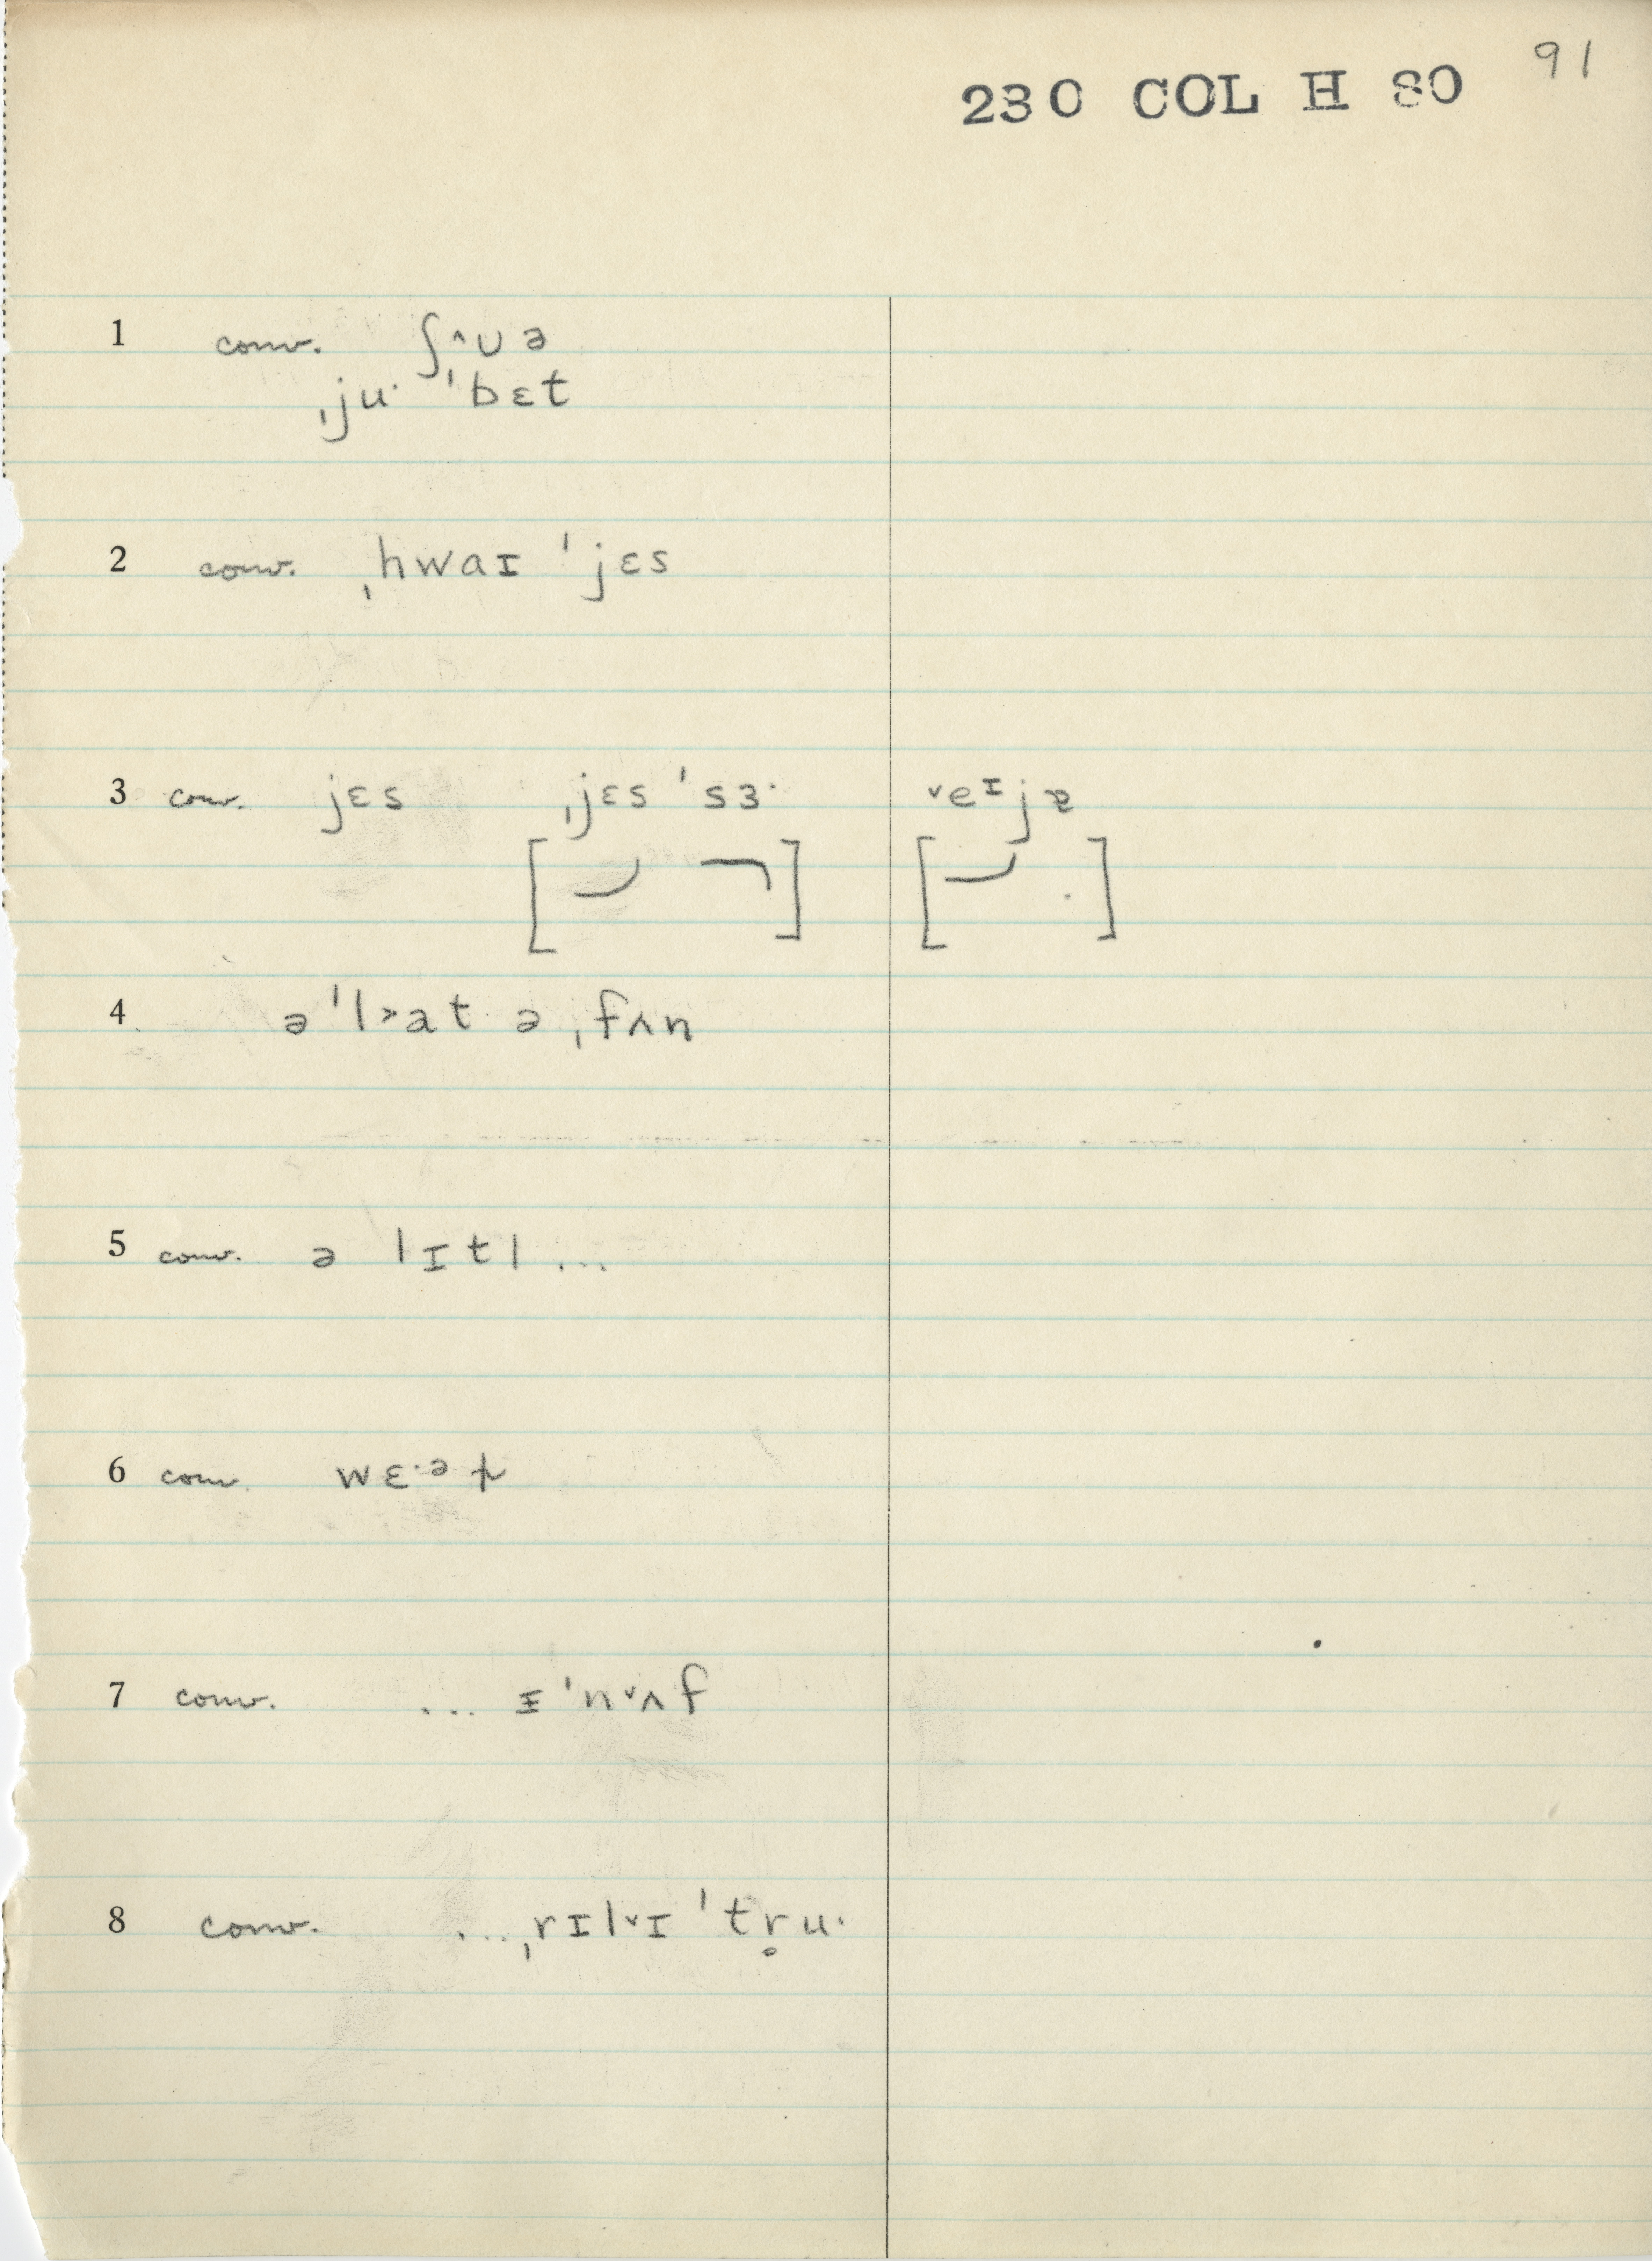 91
230 COL H 80
1 conv. ʃ˄ʊə
ˌjuˑ ˈbɛt
2 conv. ˌhwaɪ ˈjɛs
3 conv. jɛs ˌjɛs ˈsɜˑ ˅eᴵjɐ
4 ə ˈl˃at ə ˌfʌn
5 conv. ə lɪtl ...
6 conv. wɛˑᵊɫ
7 conv. ... ᵻ ˈn˅ʌf
8 conv. ... ˌrɪl˅ɪ ˈtr̥uˑ